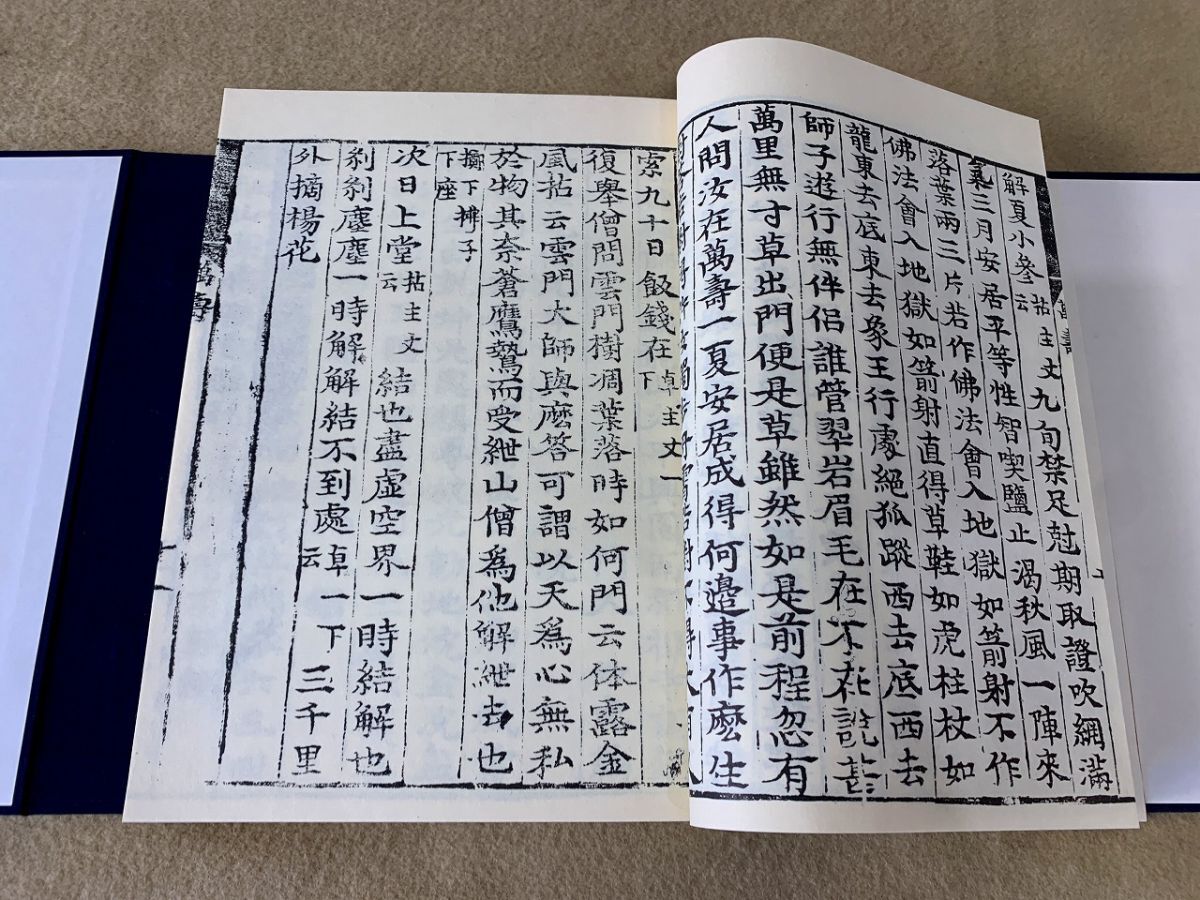 萬壽
解夏小參拈主丈云九旬禁足尅期取證吹網滿
氣三月安居平等性智喫鹽止渴秋風一陣來
落葉兩三片若作佛法會入地獄如箭射不作
佛法會入地獄如箭射直得草鞋如虎柱杖如
龍東去底東去象王行處絕狐蹤西去底西去
師子遊行無伴侶誰管翠岩眉毛在不在說甚
萬里無寸草出門便是草雖然如是前程忽有
人問汝在萬壽一夏安居成得何邊事作麽生
索九十日飯錢在卓主丈一下
復舉僧問雲門樹凋葉落時如何門云体露金
風拈云雲門大師與麽答可謂以天爲心無私
於物其奈蒼鷹鷙而受紲山僧爲他解紲去也
擲下拂子下座
次日上堂拈主丈云結也盡虛空界一時結解也
刹刹塵塵一時解解結不到處卓一下云三千里
外摘楊花
萬壽
十一